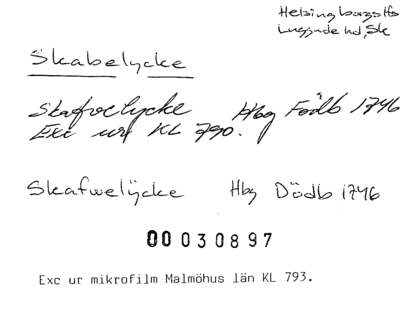 Helsingborgs lfs
Luggude hd, Sk
Skabelycke
Skafvelycke Hbg Födb 1746
Exc ur KL 790.
Skafwelÿcke Hbg Dödb 1746
00 030897
Exc ur mikrofilm Malmöhus län KL 793.